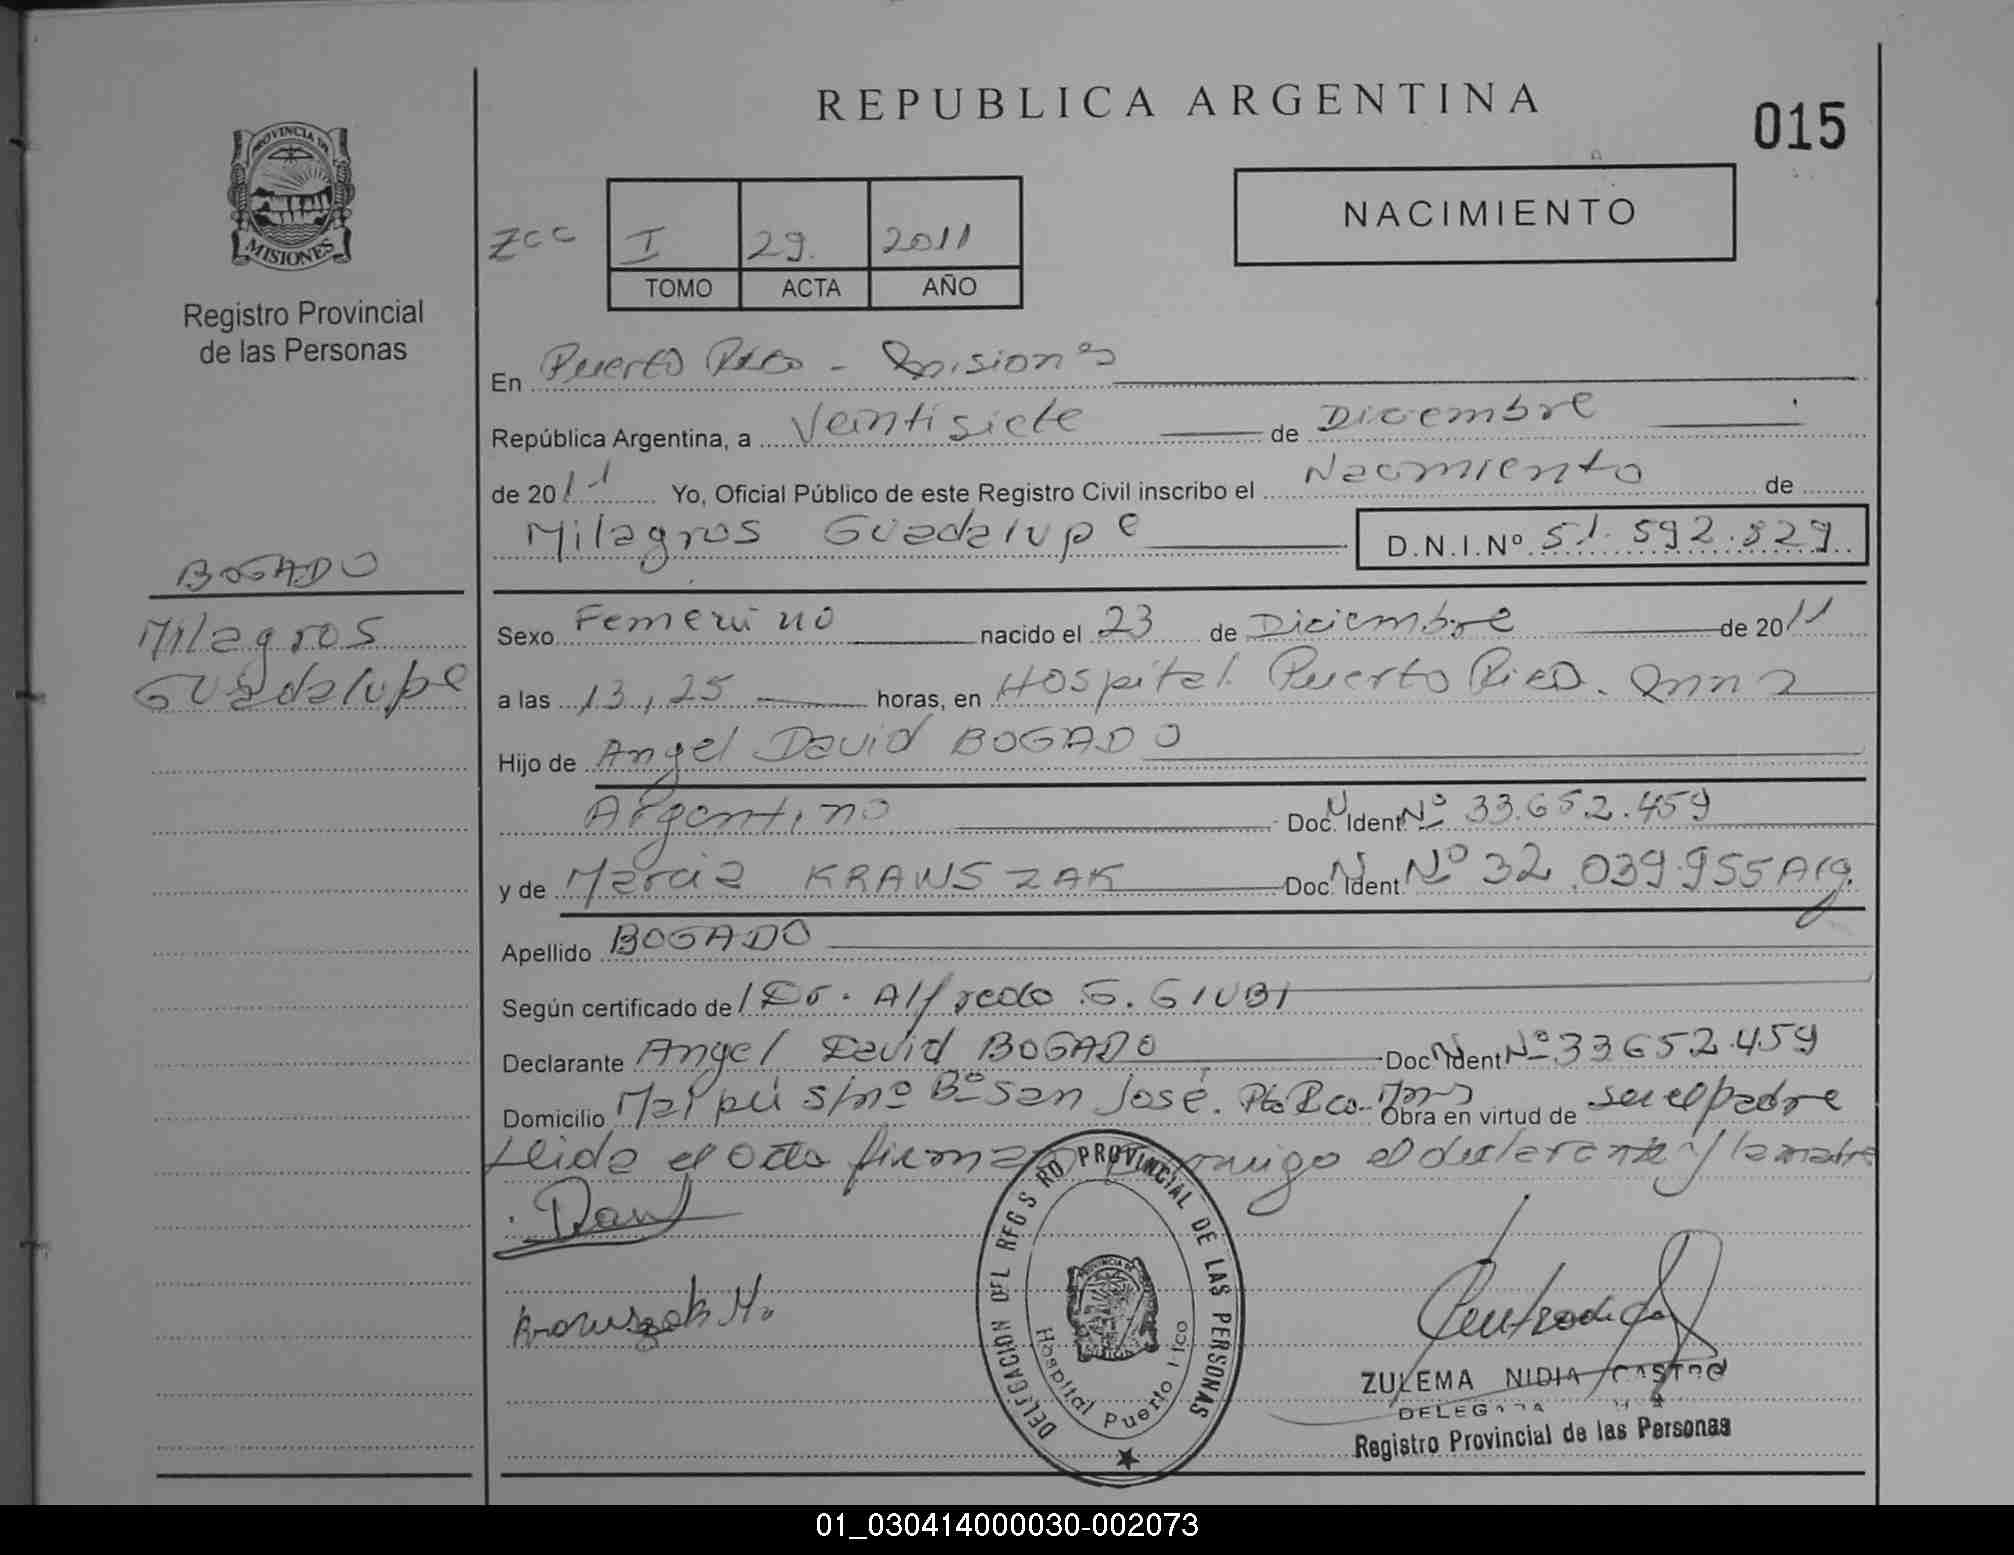 REPUBLICA ARGENTINA
015
PROVINCIA DE
MISIONES
Registro Provincial
de las Personas
NACIMIENTO
ZCC I 29. 2011
TOMO ACTA AÑO
En Puerto Rico - Misiones
República Argentina, a Veintisiete de Diciembre
de 2011 Yo, Oficial Público de este Registro Civil inscribo el Nacimiento de
Milagros Guadalupe D.N.I.Nº 51.592.829
BOGADO
Milagros
Guadalupe
Sexo Femenino nacido el 23 de Diciembre de 2011
a las 13,25 horas, en Hospital Puerto Rico. Mnes
Hijo de Angel David BOGADO
Argentino Doc. Ident Nº 33.652.459
y de Marcia KRAWSZAK Doc. Ident Nº 32.039.955 Arg.
Apellido BOGADO
Según certificado de Dr. Alfredo G. GIUBI
Declarante Angel David BOGADO Doc. Ident Nº 33.652.459
Domicilio Maipú s/nº Bº San José. Pto Rco. Mnes Obra en virtud de ser el padre
Leida el acta firman conmigo el declarante y la madre
Krawszak M.
DELEGACION DEL REGISTRO PROVINCIAL DE LAS PERSONAS
Hospital Puerto Rico
ZULEMA NIDIA CASTRO
DELEGADA
Registro Provincial de las Personas
01_030414000030-002073